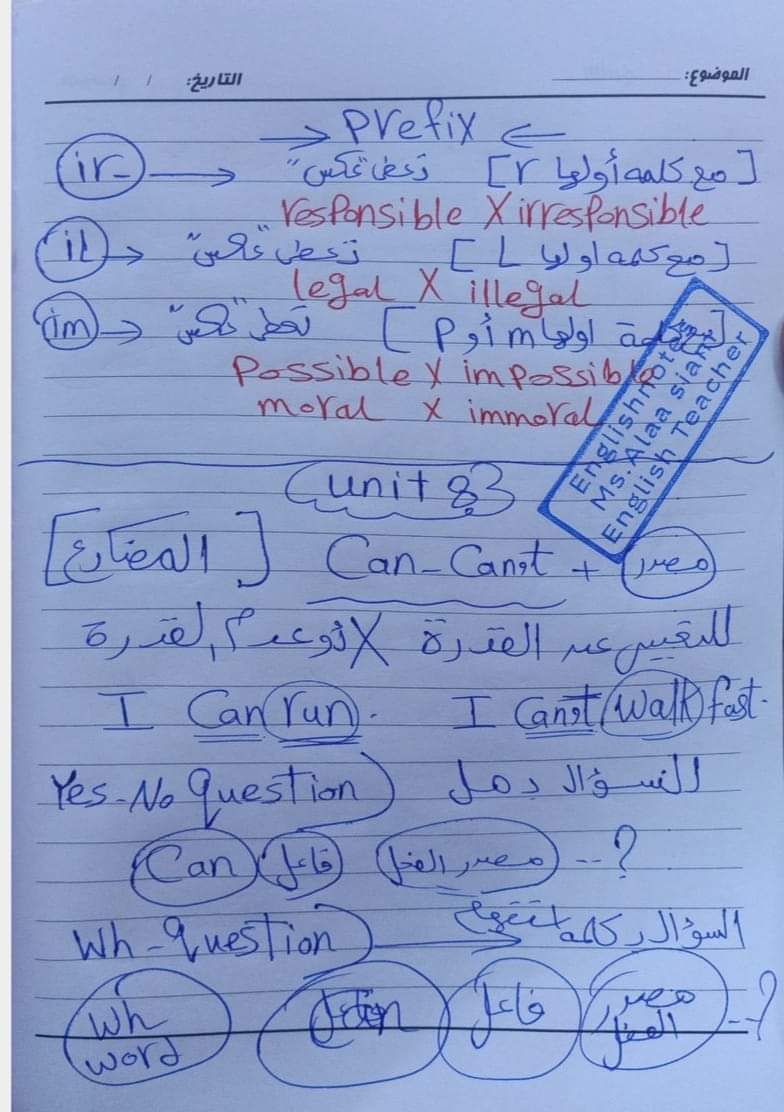 الموضوع: التاريخ: / /
→ Prefix ←
ir- → تعطى "عكس" [مع كلمه أولها r]
responsible X irresponsible
il → تعطى "عكس" [مع كلمه اولها L]
legal X illegal
im → تعطى "عكس" [كلمة اولها m أو p]
Possible X impossible
moral X immoral
Englishnotes
Ms. Alaa siam
English Teacher
unit 83
[المضارع] Can - Can't + مصدر
للتعبير عن القدرة X القدرة
I Can run. I Can't Walk fast.
Yes-No question) للسؤال بهل
Can فاعل مصدر الفعل --?
Wh-question) → السؤال بكلمة
Wh word فاعل مصدر الفعل --?